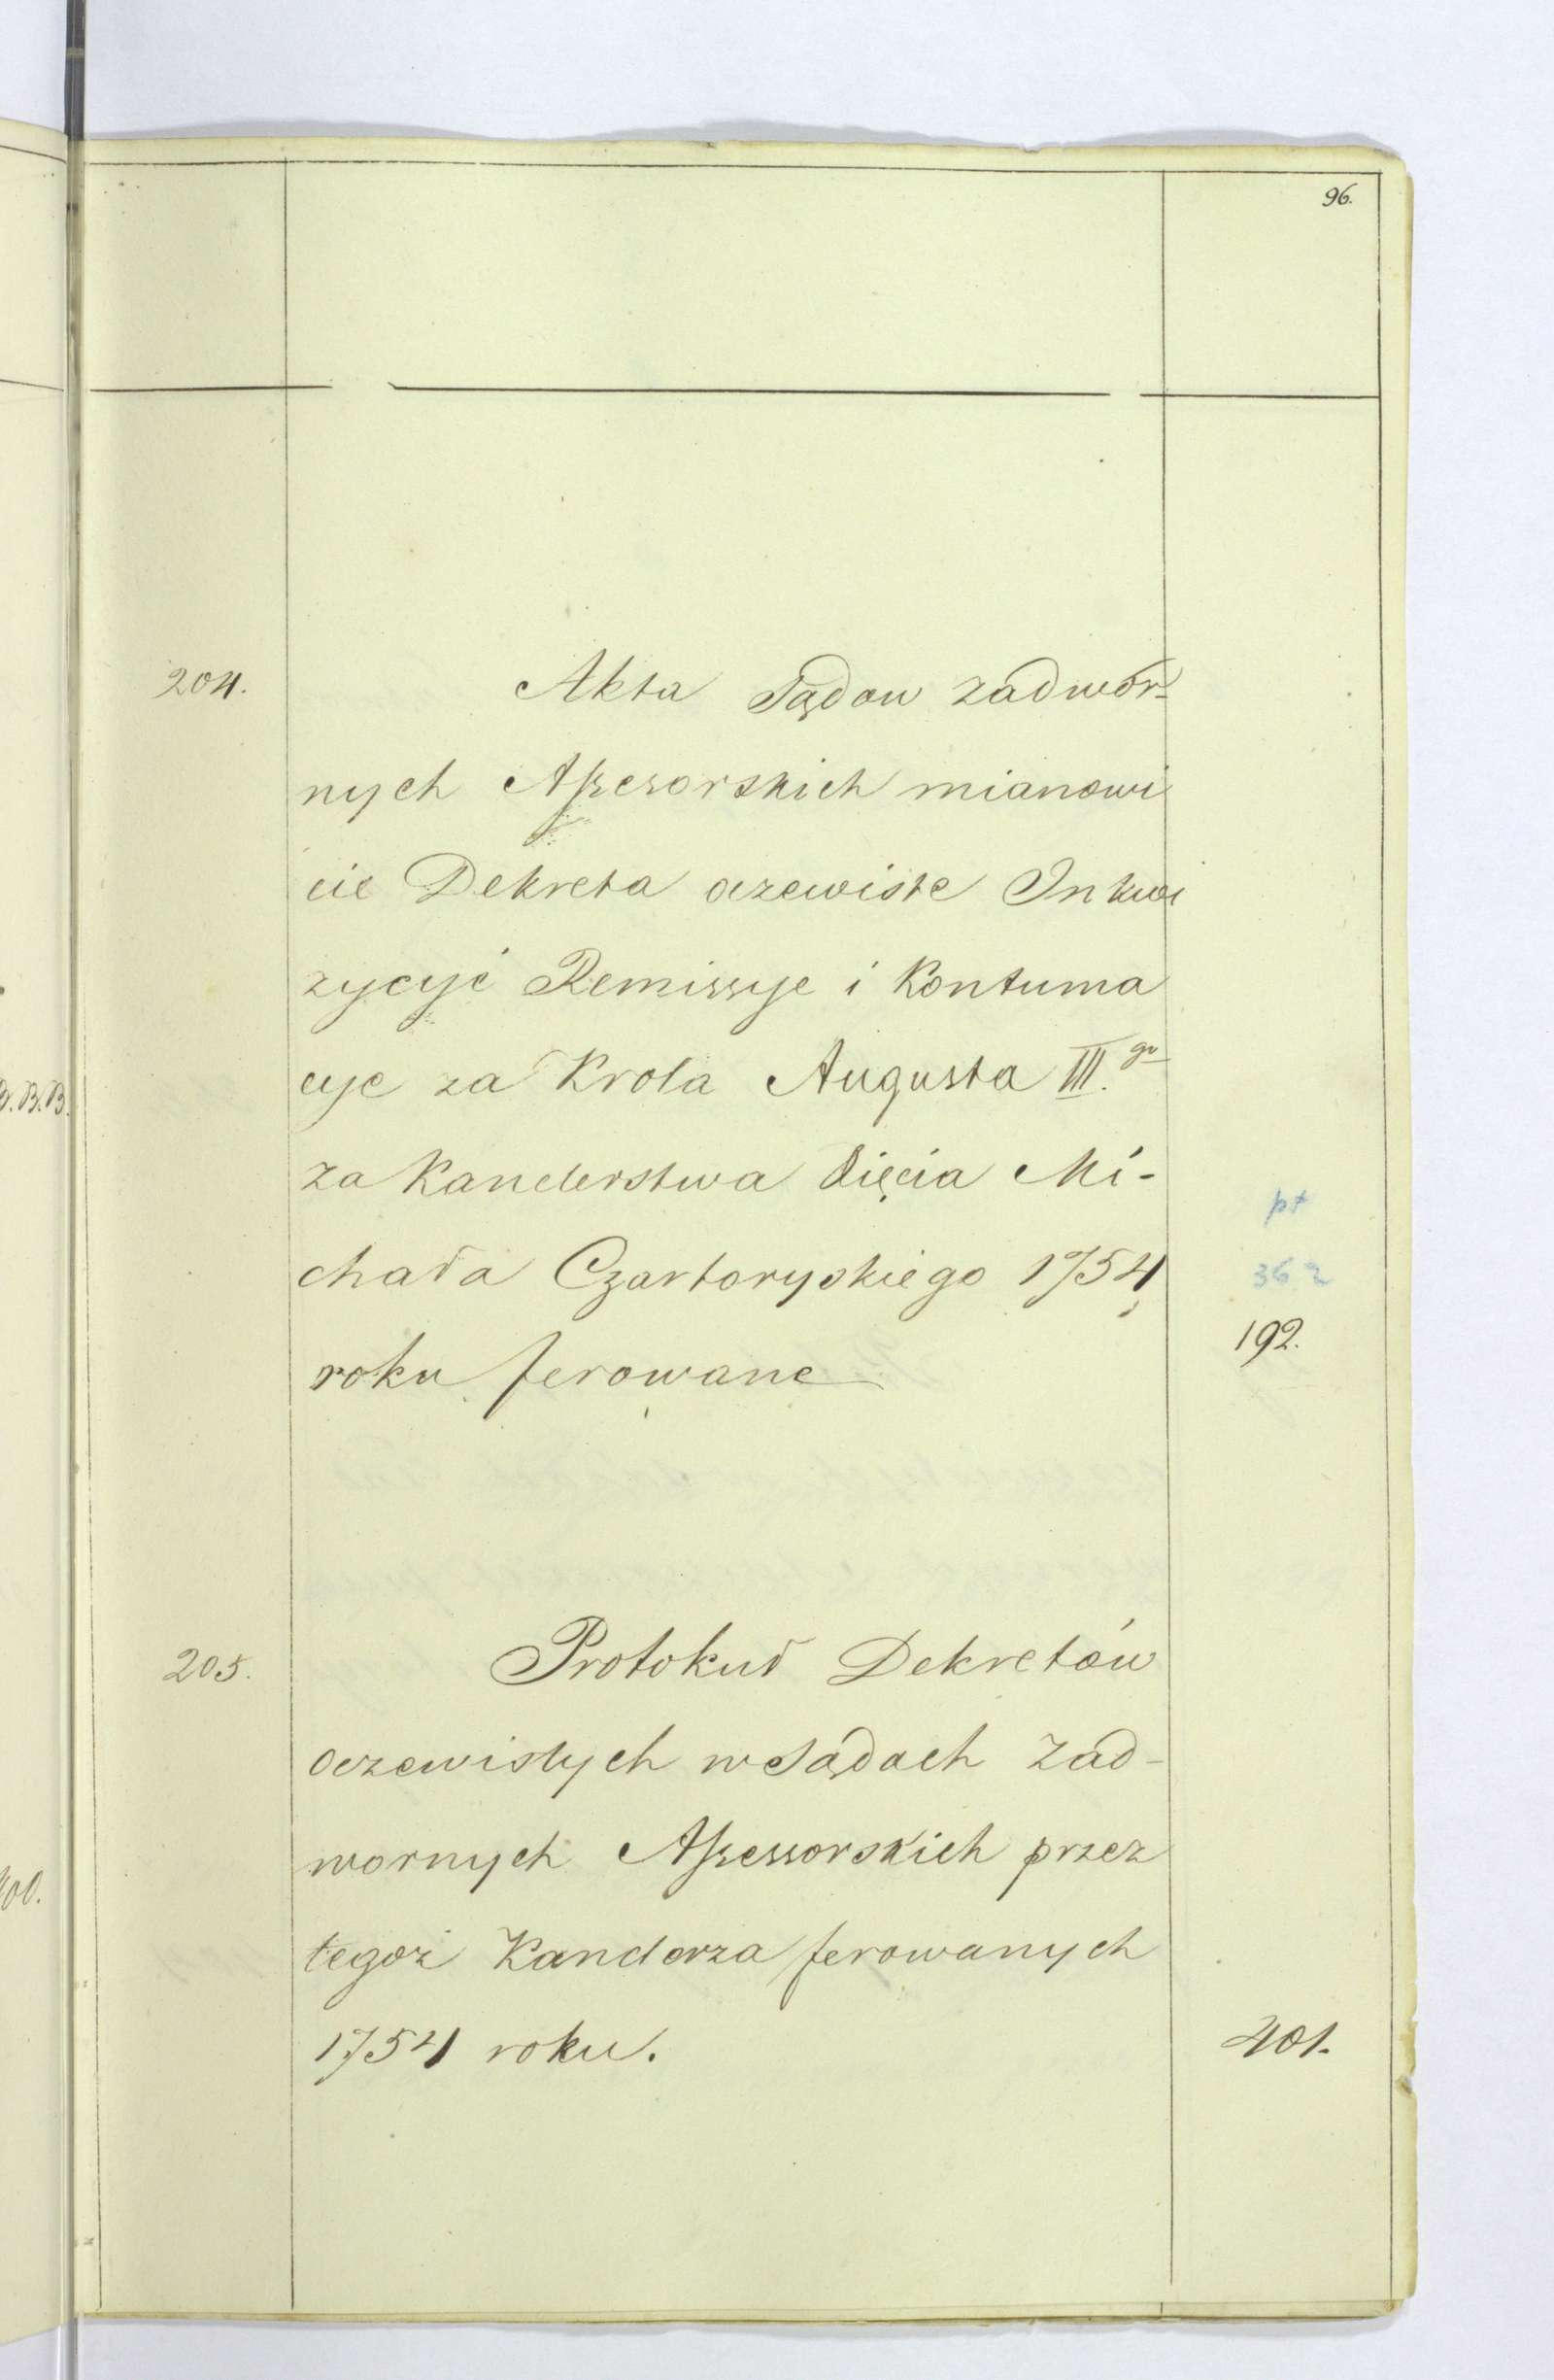 96.
204. Akta Sądow zadwor-
nych Assesorskich mianowi
cie Dekreta oczewiste Inkwi
zycyie Remissye i Kontuma
cye za Krola Augusta III.go
za Kanclerstwa Xięcia Mi-
chała Czartoryskiego 1754
roku ferowane
pt
362
192.
205. Protokuł Dekretów
oczewistych w Sądach Zad-
wornych Assessorskich przez
tegoż Kanclerza ferowanych
1754 roku. 401.